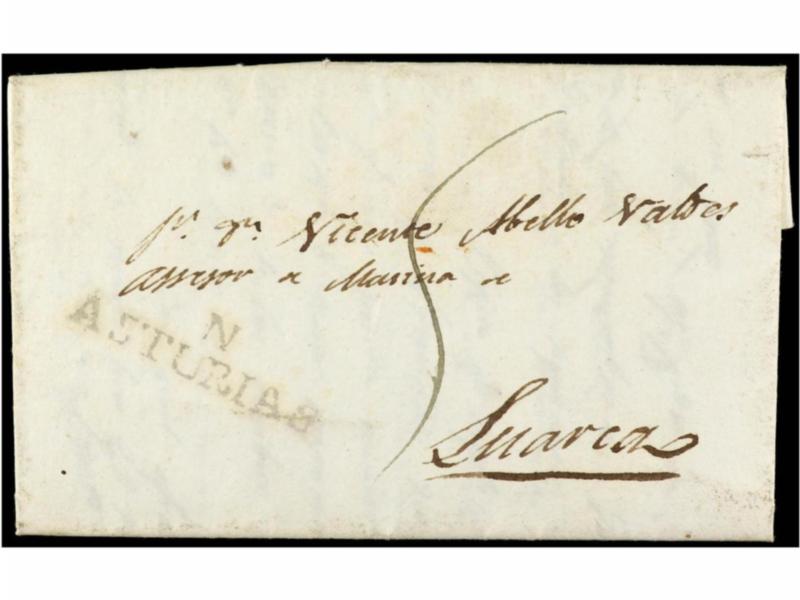 Vicente Abello Valdes
Assesor de Marina de
N
ASTURIAS
Luarca